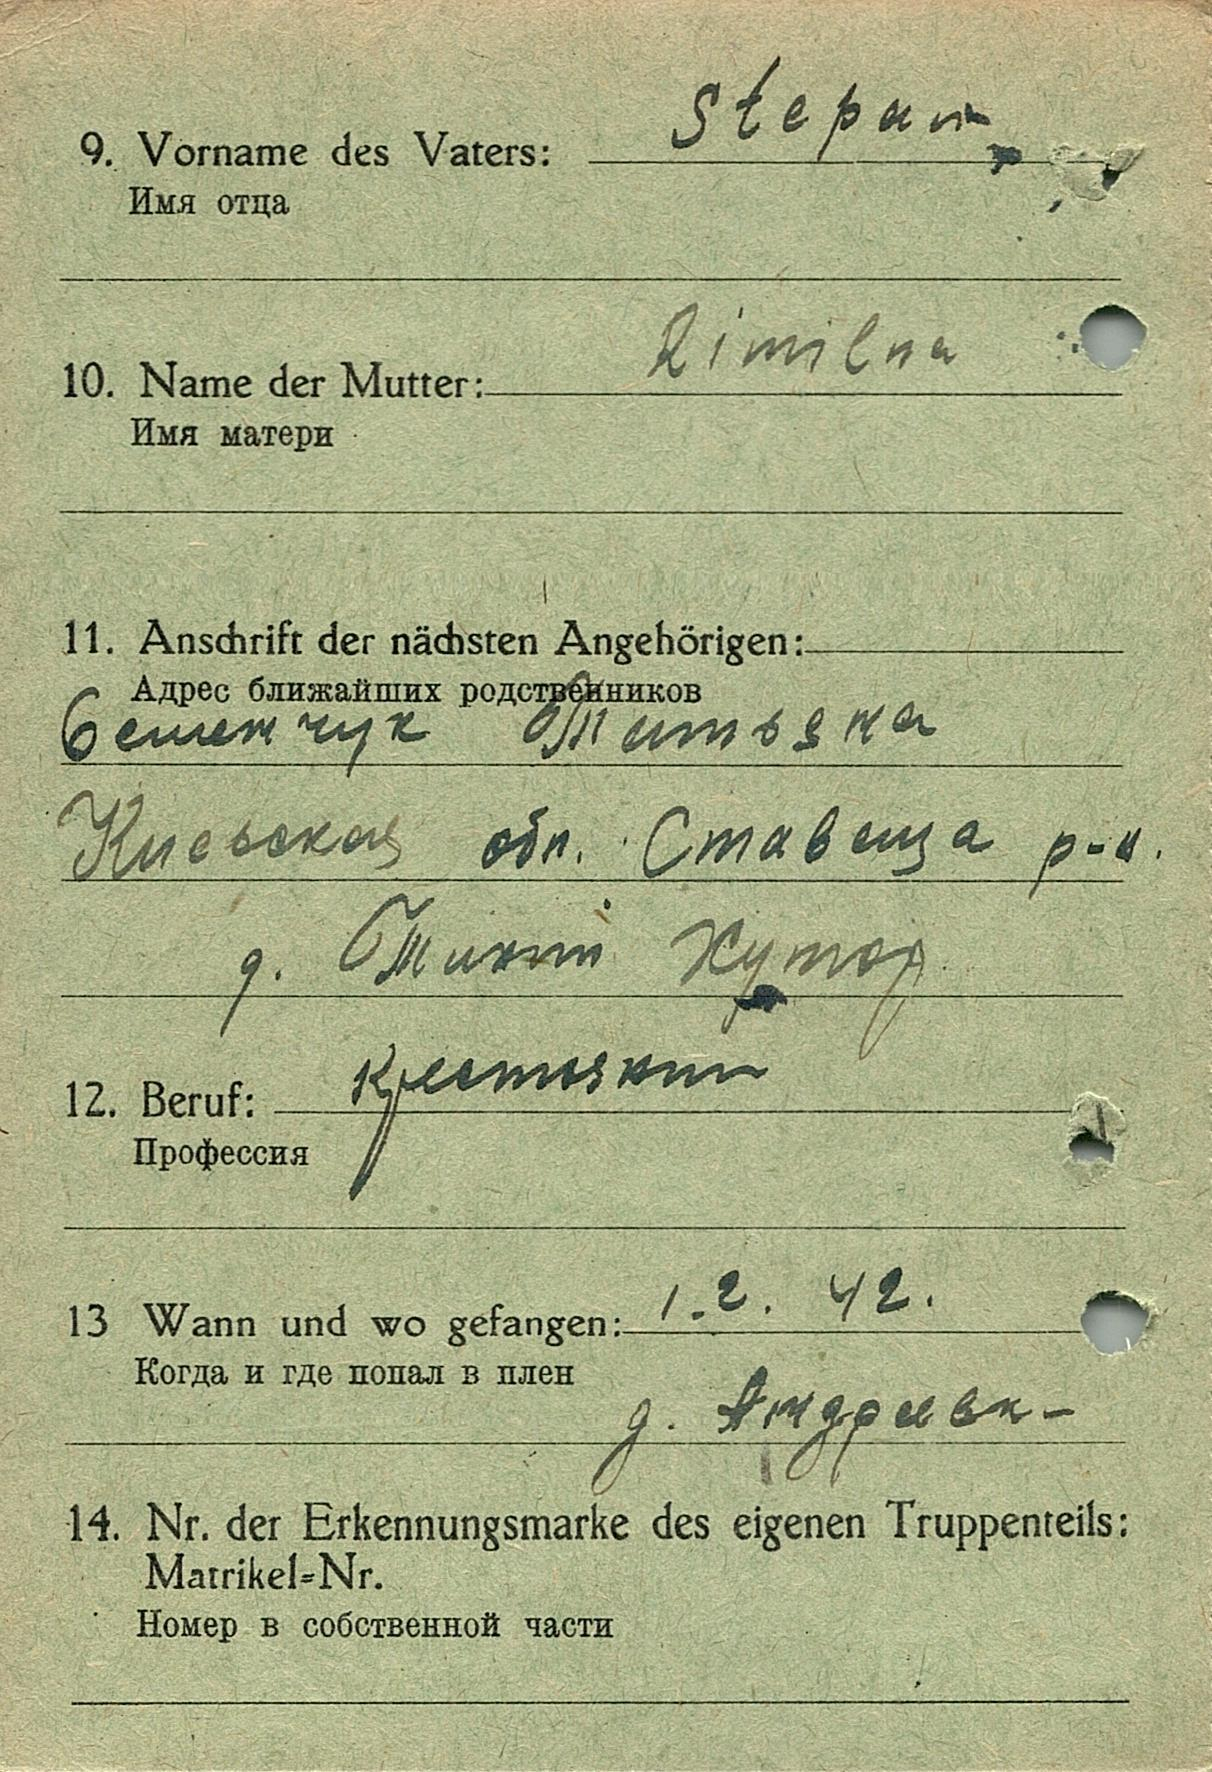 9. Vorname des Vaters: Stepan
Имя отца
10. Name der Mutter: Rimilna
Имя матери
11. Anschrift der nächsten Angehörigen:
Адрес ближайших родственников
Семенчук Татьяна
Киевская обл. Ставеща р-н.
д. Хутор
12. Beruf: крестянин
Профессия
13 Wann und wo gefangen: 1.2. 42.
Когда и где попал в плен
д.
14. Nr. der Erkennungsmarke des eigenen Truppenteils:
Matrikel=Nr.
Номер в собственной части